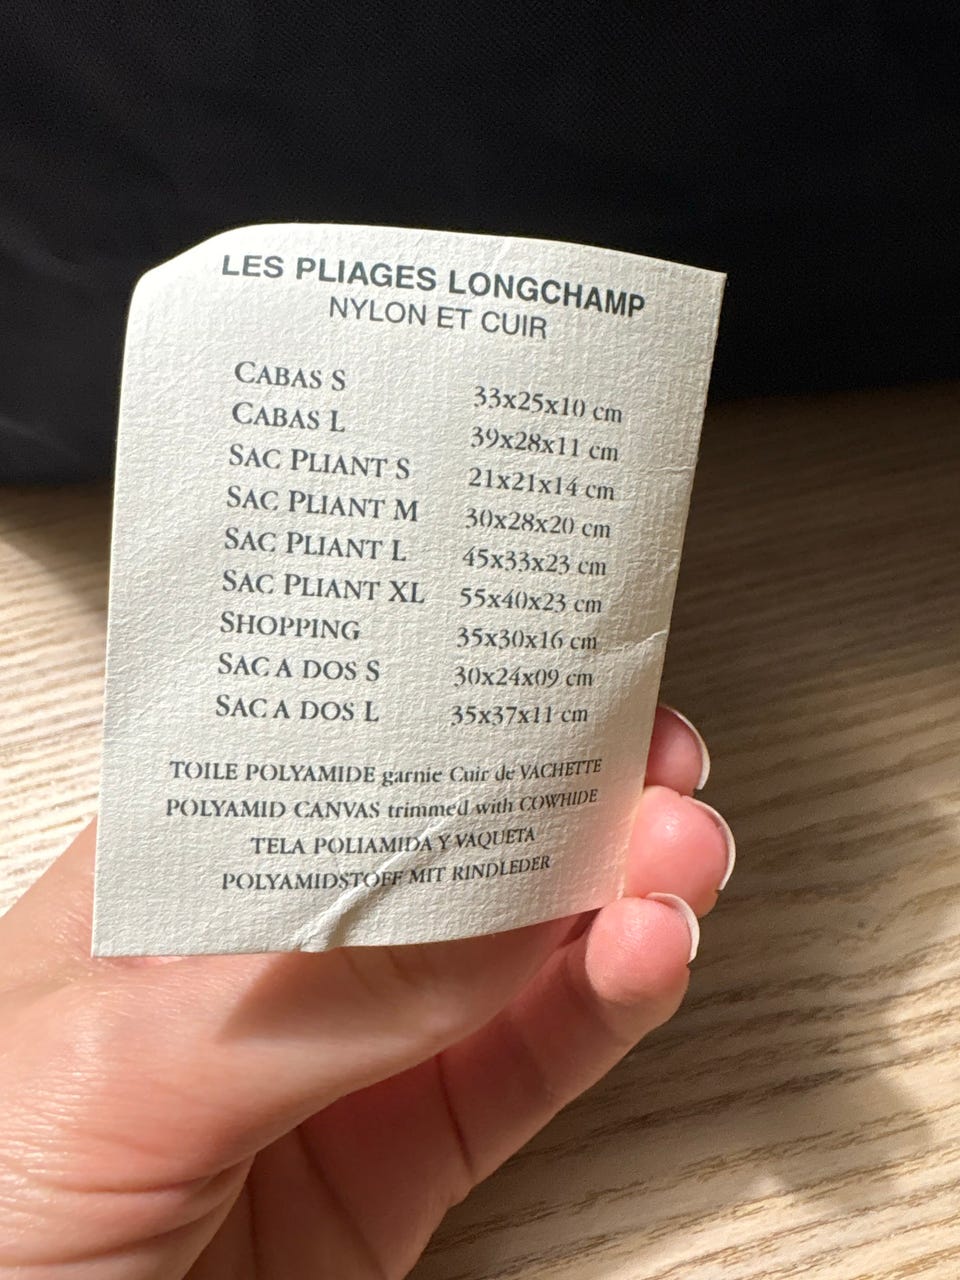 LES PLIAGES LONGCHAMP
NYLON ET CUIR
CABAS S 33x25x10 cm
CABAS L 39x28x11 cm
SAC PLIANT S 21x21x14 cm
SAC PLIANT M 30x28x20 cm
SAC PLIANT L 45x33x23 cm
SAC PLIANT XL 55x40x23 cm
SHOPPING 35x30x16 cm
SAC A DOS S 30x24x09 cm
SAC A DOS L 35x37x11 cm
TOILE POLYAMIDE garnie Cuir de VACHETTE
POLYAMID CANVAS trimmed with COWHIDE
TELA POLIAMIDA Y VAQUETA
POLYAMIDSTOFF MIT RINDLEDER